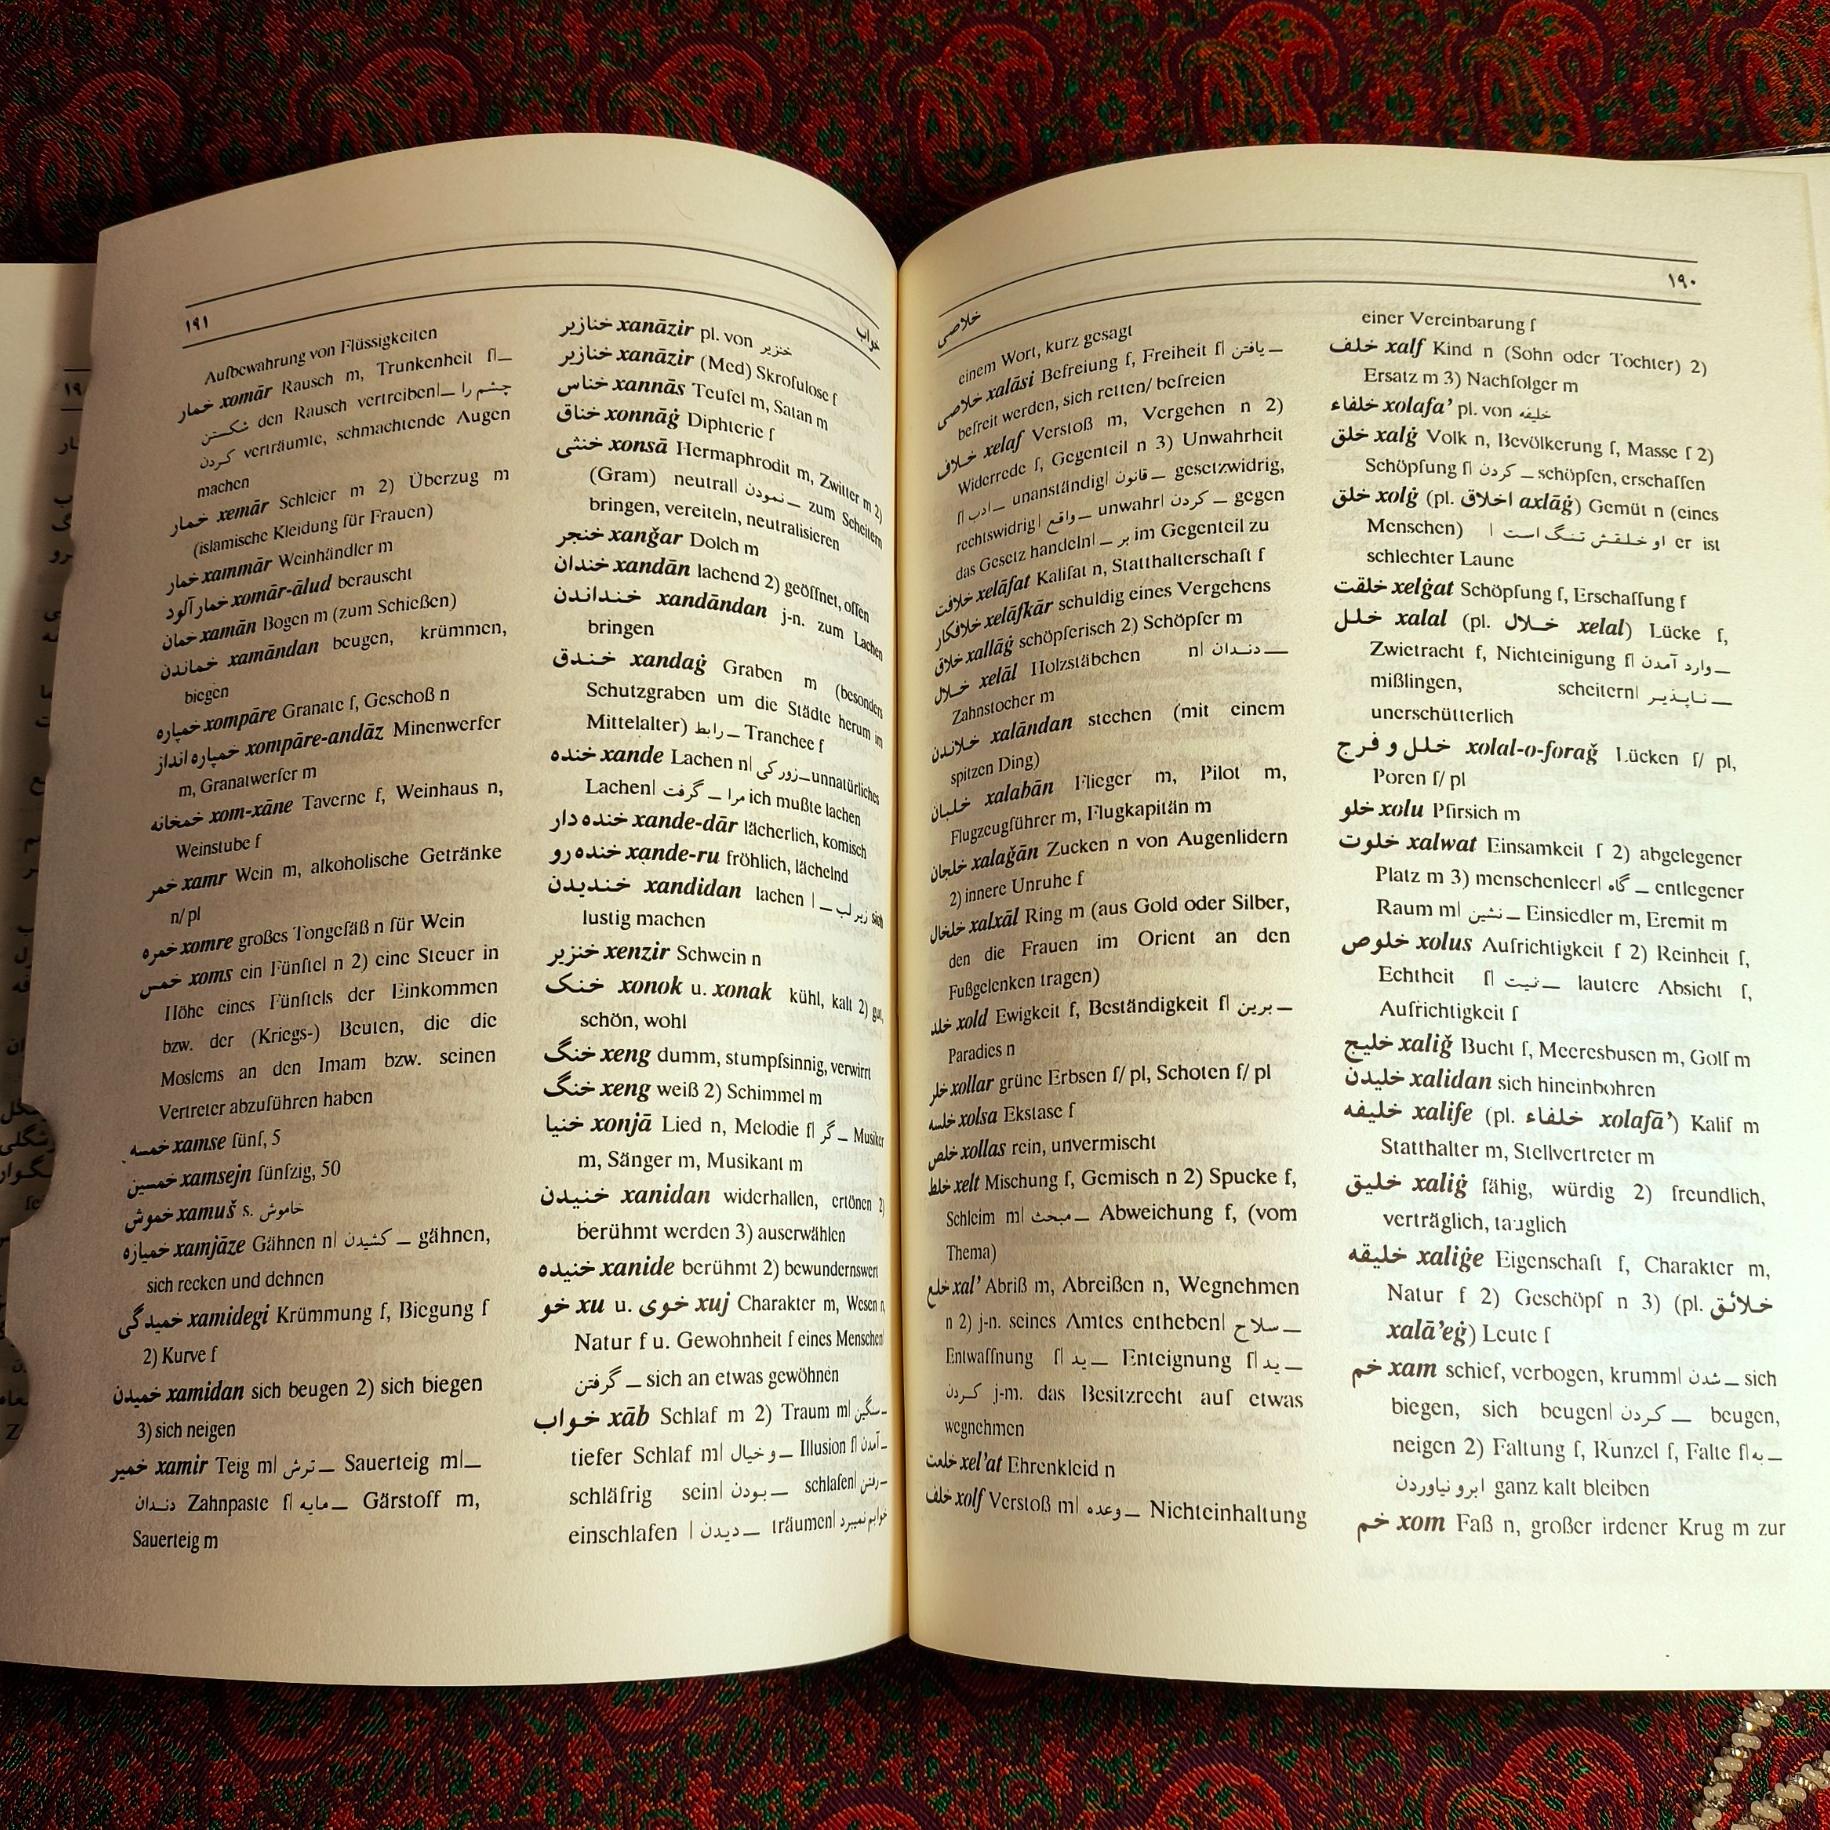 خلاصی
۱۹۰
einem Wort, kurz gesagt
خلاصی xalāsi Befreiung f, Freiheit f| یافتن ـ
befreit werden, sich retten/ befreien
خلاف xelaf Verstoß m, Vergehen n 2)
Widerrede f, Gegenteil n 3) Unwahrheit
f| ادب ـ unanständig| قانون ـ gesetzwidrig,
rechtswidrig| واقع ـ unwahr| کردن ـ gegen
das Gesetz handeln| بر ـ im Gegenteil zu
خلافت xelāfat Kalifat n, Statthalterschaft f
خلافکار xelāfkār schuldig eines Vergehens
خلاق xallāġ schöpferisch 2) Schöpfer m
خلال xelāl Holzstäbchen n| دندان ـ
Zahnstocher m
خلاندن xalāndan stechen (mit einem
spitzen Ding)
خلبان xalabān Flieger m, Pilot m,
Flugzeugführer m, Flugkapitän m
خلجان xalaǧān Zucken n von Augenlidern
2) innere Unruhe f
خلخال xalxāl Ring m (aus Gold oder Silber,
den die Frauen im Orient an den
Fußgelenken tragen)
خلد xold Ewigkeit f, Beständigkeit f| برین ـ
Paradies n
خلر xollar grüne Erbsen f/ pl, Schoten f/ pl
خلسه xolsa Ekstase f
خلص xollas rein, unvermischt
خلط xelt Mischung f, Gemisch n 2) Spucke f,
Schleim m| مبحث ـ Abweichung f, (vom
Thema)
خلع xal’ Abriß m, Abreißen n, Wegnehmen
n 2) j-n. seines Amtes entheben| سلاح ـ
Entwaffnung f| ید ـ Enteignung f| ید ـ
کردن j-m. das Besitzrecht auf etwas
wegnehmen
خلعت xel’at Ehrenkleid n
خلف xolf Verstoß m| وعده ـ Nichteinhaltung
einer Vereinbarung f
خلف xalf Kind n (Sohn oder Tochter) 2)
Ersatz m 3) Nachfolger m
خلفاء xolafa’ pl. von خلیفه
خلق xalġ Volk n, Bevölkerung f, Masse f 2)
Schöpfung f| کردن ـ schöpfen, erschaffen
خلق xolġ (pl. اخلاق axlāġ) Gemüt n (eines
Menschen) | او خلقش تنگ است er ist
schlechter Laune
خلقت xelġat Schöpfung f, Erschaffung f
خلل xalal (pl. خلال xelal) Lücke f,
Zwietracht f, Nichteinigung f| وارد آمدن ـ
mißlingen, scheitern| ناپذیر ـ
unerschütterlich
خلل و فرج xolal-o-foraǧ Lücken f/ pl,
Poren f/ pl
خلو xolu Pfirsich m
خلوت xalwat Einsamkeit f 2) abgelegener
Platz m 3) menschenleer| گاه ـ entlegener
Raum m| نشین ـ Einsiedler m, Eremit m
خلوص xolus Aufrichtigkeit f 2) Reinheit f,
Echtheit f| نیت ـ lautere Absicht f,
Aufrichtigkeit f
خلیج xaliǧ Bucht f, Meeresbusen m, Golf m
خلیدن xalidan sich hineinbohren
خلیفه xalife (pl. خلفاء xolafā’) Kalif m
Statthalter m, Stellvertreter m
خلیق xaliġ fähig, würdig 2) freundlich,
verträglich, tauglich
خلیقه xaliġe Eigenschaft f, Charakter m,
Natur f 2) Geschöpf n 3) (pl. خلائق
xalā’eġ) Leute f
خم xam schief, verbogen, krumm| شدن ـ sich
biegen, sich beugen| کردن ـ beugen,
neigen 2) Faltung f, Runzel f, Falte f| به ـ
ابرو نیاوردن ganz kalt bleiben
خم xom Faß n, großer irdener Krug m zur
۱۹۱
خواب
Aufbewahrung von Flüssigkeiten
خمار xomār Rausch m, Trunkenheit f| ـ
شکستن den Rausch vertreiben| چشم را ـ
کردن verträumte, schmachtende Augen
machen
خمار xemār Schleier m 2) Überzug m
(islamische Kleidung für Frauen)
خمار xammār Weinhändler m
خمارآلود xomār-ālud berauscht
خمان xamān Bogen m (zum Schießen)
خماندن xamāndan beugen, krümmen,
biegen
خمپاره xompāre Granate f, Geschoß n
خمپاره انداز xompāre-andāz Minenwerfer
m, Granatwerfer m
خمخانه xom-xāne Taverne f, Weinhaus n,
Weinstube f
خمر xamr Wein m, alkoholische Getränke
n/ pl
خمره xomre großes Tongefäß n für Wein
خمس xoms ein Fünftel n 2) eine Steuer in
Höhe eines Fünftels der Einkommen
bzw. der (Kriegs-) Beuten, die die
Moslems an den Imam bzw. seinen
Vertreter abzuführen haben
خمسه xamse fünf, 5
خمسین xamsejn fünfzig, 50
خموش xamuš s. خاموش
خمیازه xamjāze Gähnen n| کشیدن ـ gähnen,
sich recken und dehnen
خمیدگی xamidegi Krümmung f, Biegung f
2) Kurve f
خمیدن xamidan sich beugen 2) sich biegen
3) sich neigen
خمیر xamir Teig m| ترش ـ Sauerteig m| ـ
دندان Zahnpaste f| مایه ـ Gärstoff m,
Sauerteig m
خنازیر xanāzir pl. von خنزیر
خنازیر xanāzir (Med) Skrofulose f
خناس xannās Teufel m, Satan m
خناق xonnāġ Diphterie f
خنثی xonsā Hermaphrodit m, Zwitter m 2)
(Gram) neutral| نمودن ـ zum Scheitern
bringen, vereiteln, neutralisieren
خنجر xanǧar Dolch m
خندان xandān lachend 2) geöffnet, offen
خنداندن xandāndan j-n. zum Lachen
bringen
خندق xandaġ Graben m (besonders
Schutzgraben um die Städte herum im
Mittelalter) رابط ـ Tranchee f
خنده xande Lachen n| زورکی ـ unnatürliches
Lachen| مرا ـ گرفت ich mußte lachen
خنده دار xande-dār lächerlich, komisch
خنده رو xande-ru fröhlich, lächelnd
خندیدن xandidan lachen | زیر لب ـ sich
lustig machen
خنزیر xenzir Schwein n
خنک xonok u. xonak kühl, kalt 2) gut,
schön, wohl
خنگ xeng dumm, stumpfsinnig, verwirrt
خنگ xeng weiß 2) Schimmel m
خنیا xonjā Lied n, Melodie f| گر ـ Musiker
m, Sänger m, Musikant m
خنیدن xanidan widerhallen, ertönen 2)
berühmt werden 3) auserwählen
خنیده xanide berühmt 2) bewundernswert
خو xu u. خوی xuj Charakter m, Wesen n,
Natur f u. Gewohnheit f eines Menschen|
گرفتن ـ sich an etwas gewöhnen
خواب xāb Schlaf m 2) Traum m| سنگین ـ
tiefer Schlaf m| و خیال ـ Illusion f| آمدن ـ
schläfrig sein| بودن ـ schlafen| رفتن ـ
einschlafen | دیدن ـ träumen| خوابم نمیبرد